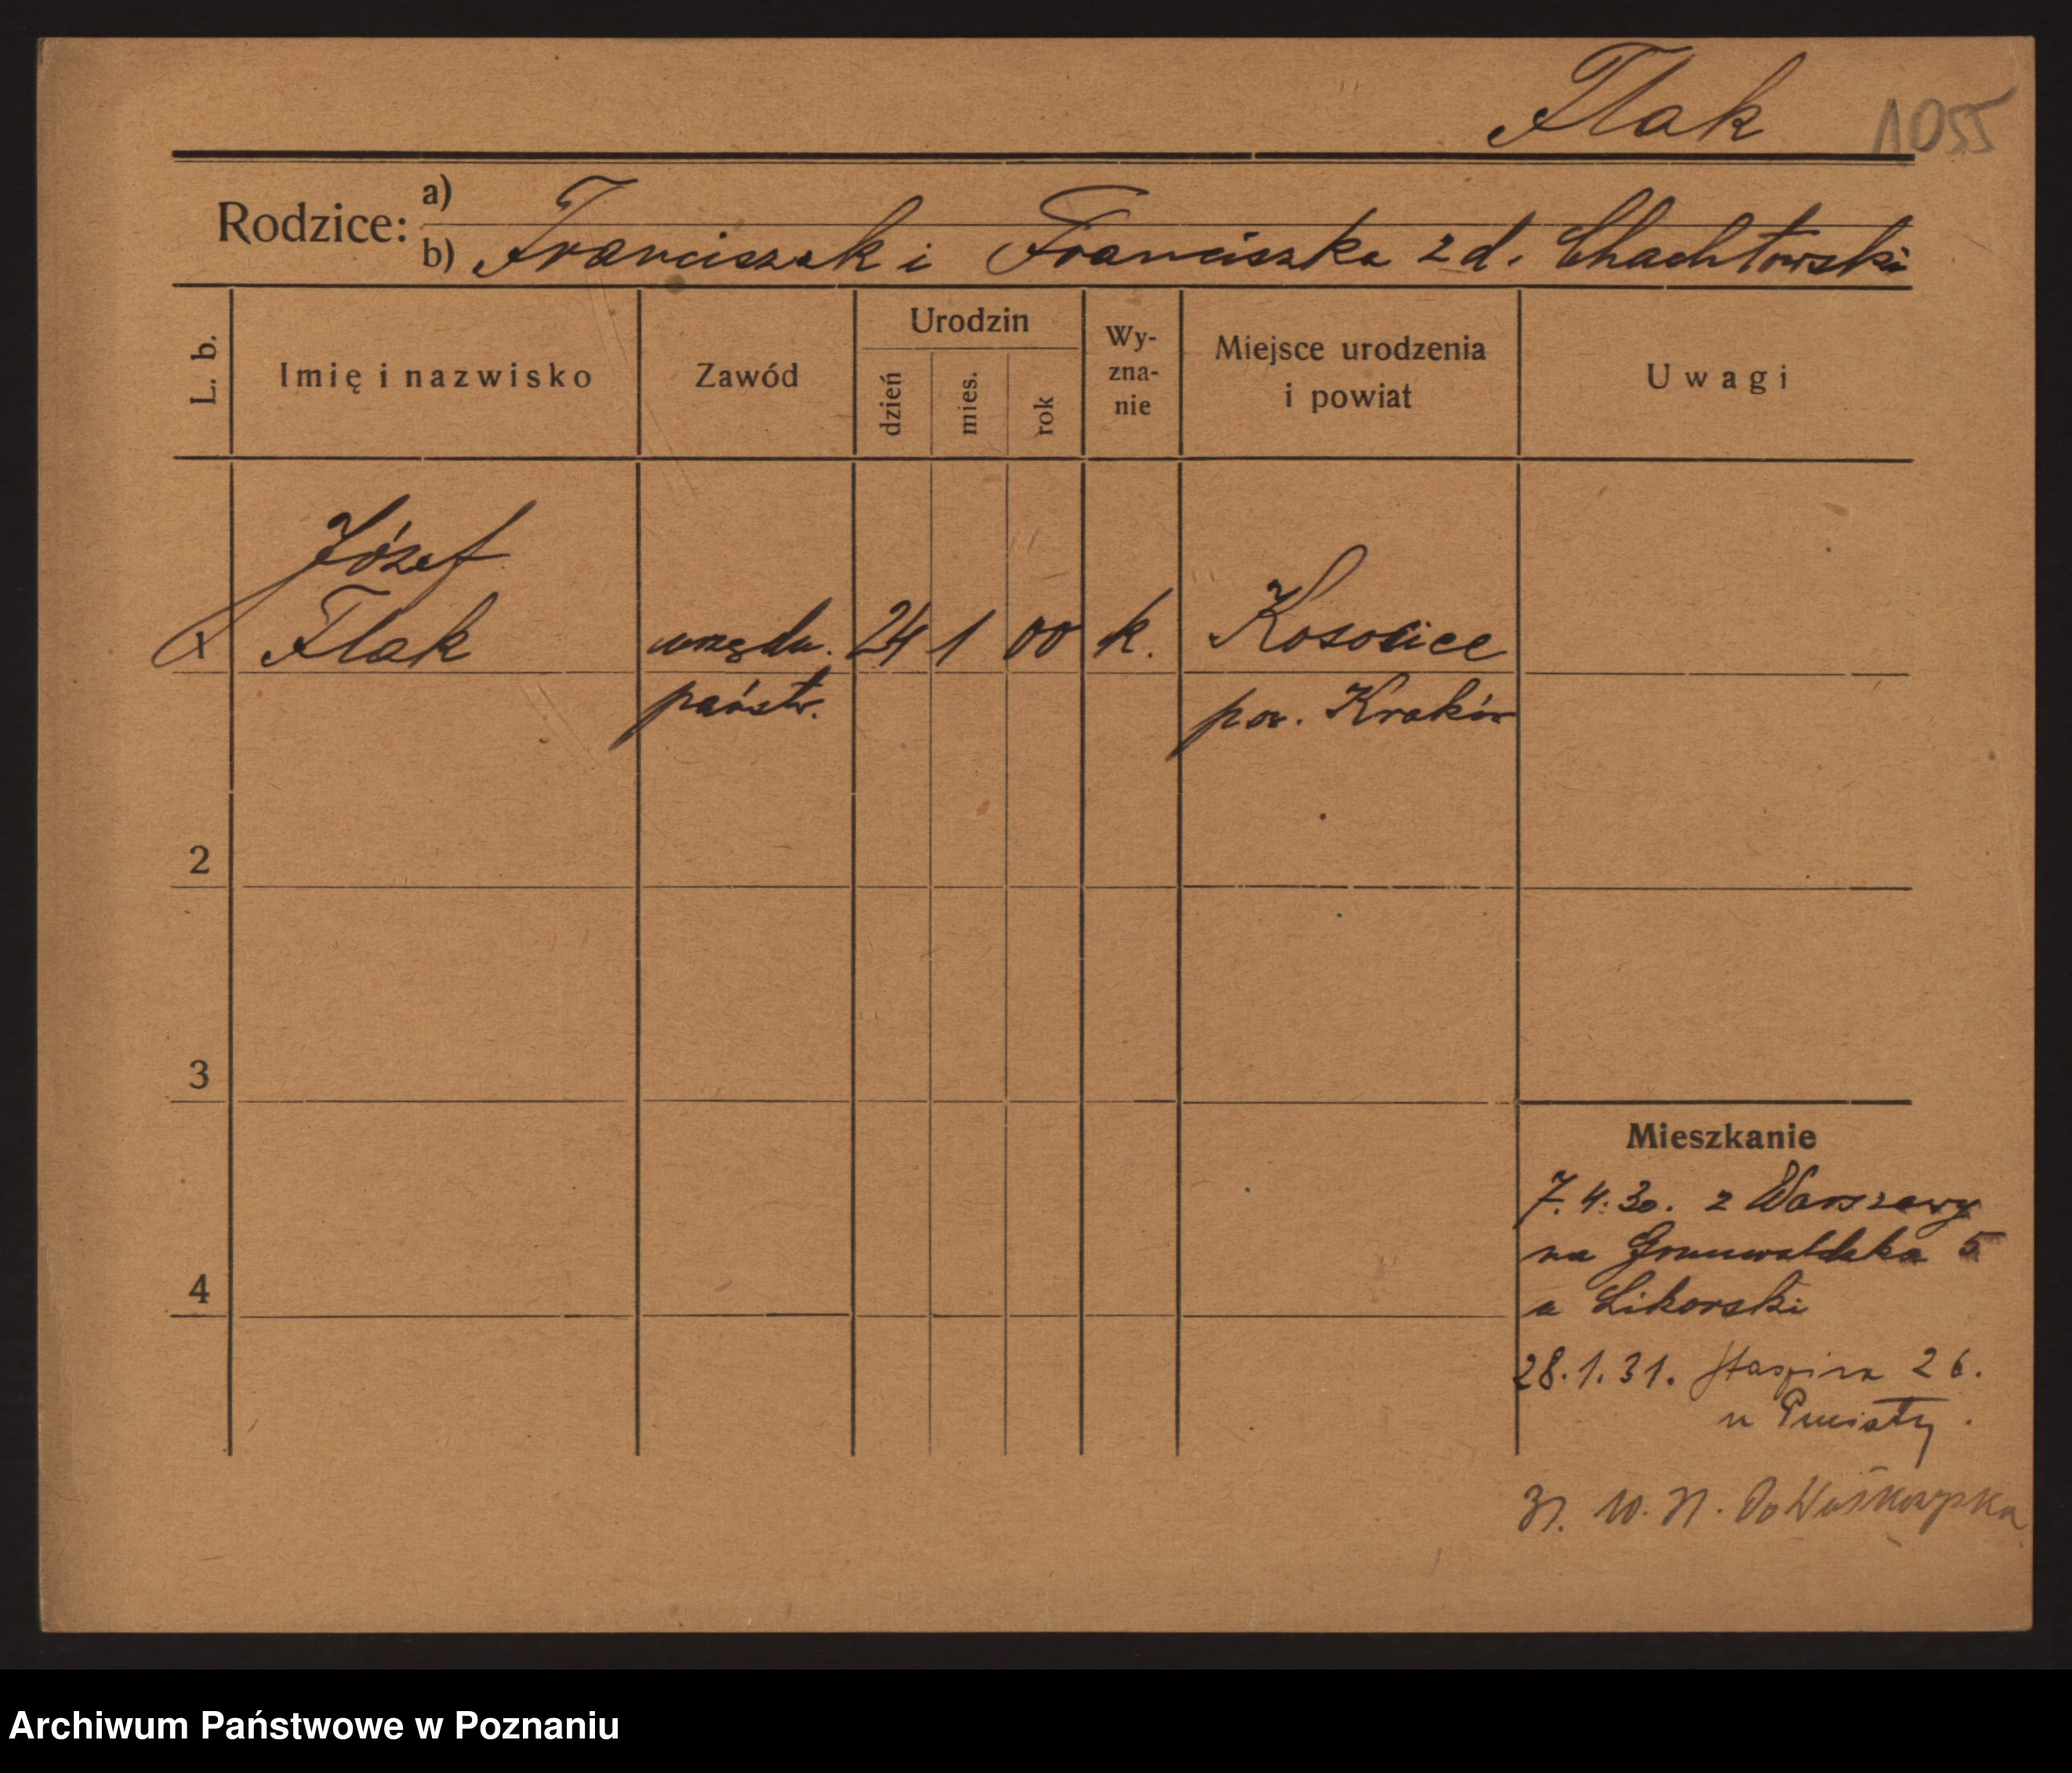 Flak 1055
Rodzice: a)
b) Franciszek i Franciszka z d. Chachłowski
L. b.
Imię i nazwisko
Zawód
Urodzin
dzień
mies.
rok
Wy-
zna-
nie
Miejsce urodzenia
i powiat
Uwagi
Józef
1 Flak urzędn. 24 1 00 k. Kosocice
państw. pow. Kraków
2
3
Mieszkanie
7.4.30. z Warszawy
na Grunwaldzka 5
4
a Sikorski
28.1.31. 26.
u
Archiwum Państwowe w Poznaniu